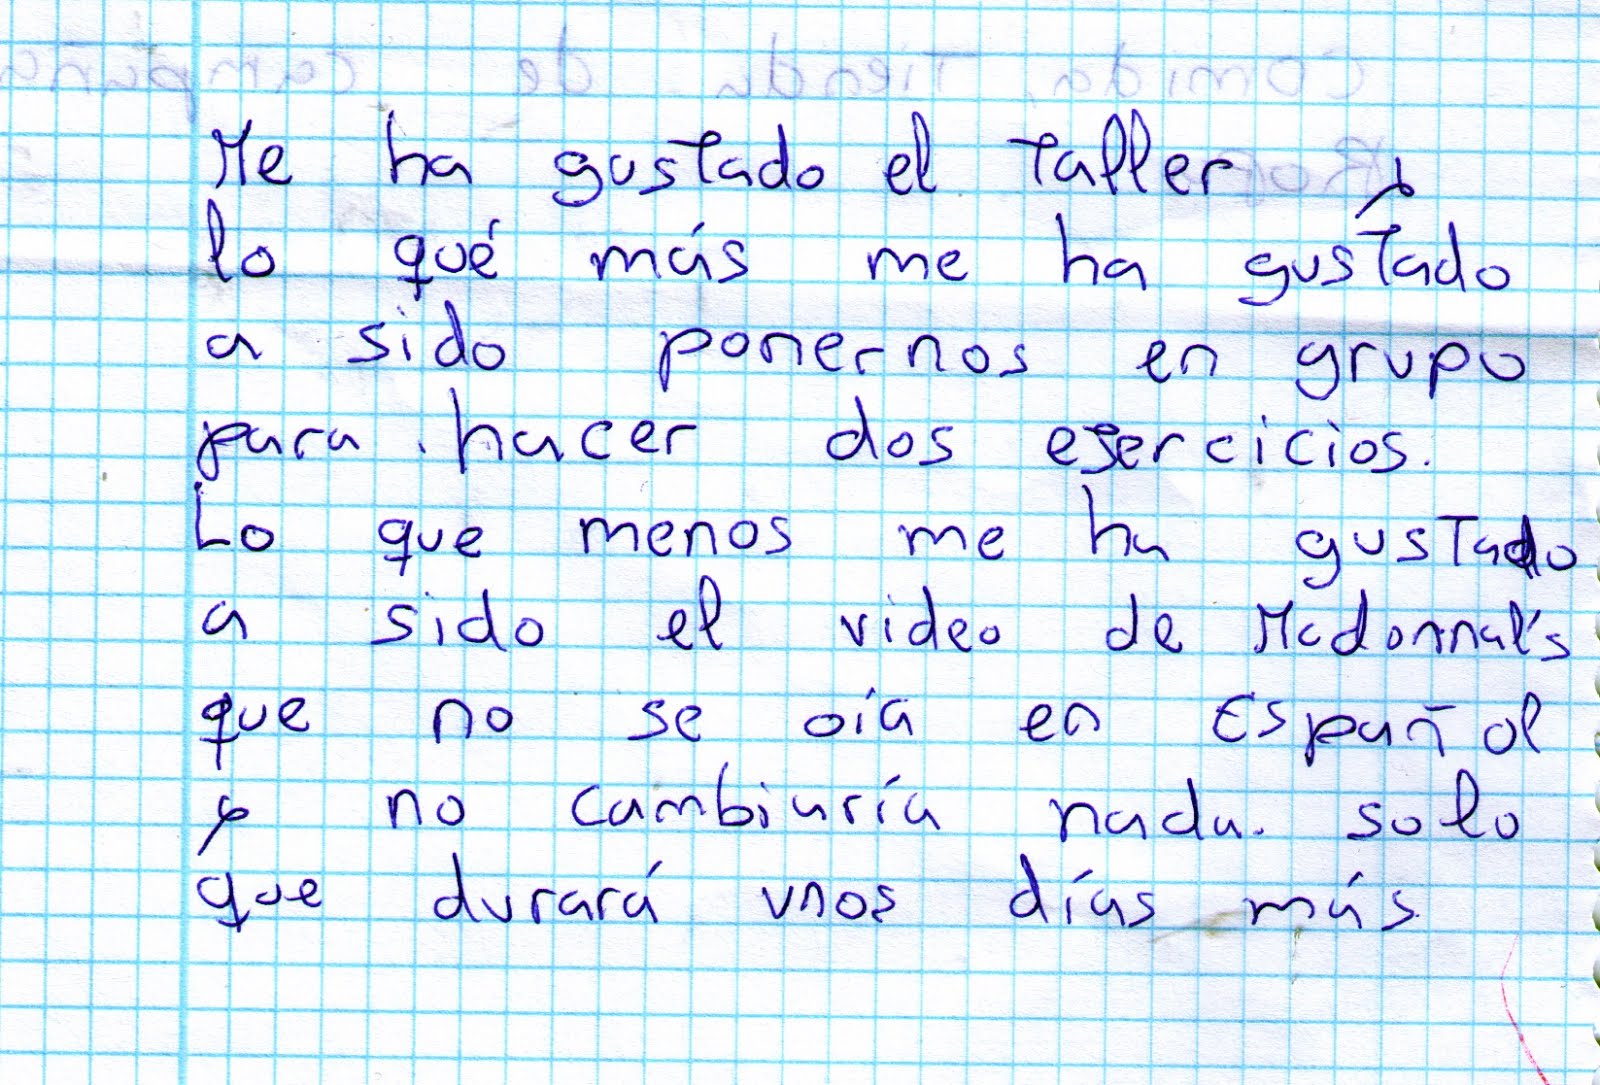 Comida, Tienda de campaña
Ropa
Me ha gustado el Taller y
lo qué más me ha gustado
a sido ponernos en grupo
para hacer dos ejercicios.
Lo que menos me ha gustado
a sido el video de Mcdonnal's
que no se oía en Español
y no cambiaría nada. solo
que durará unos días más